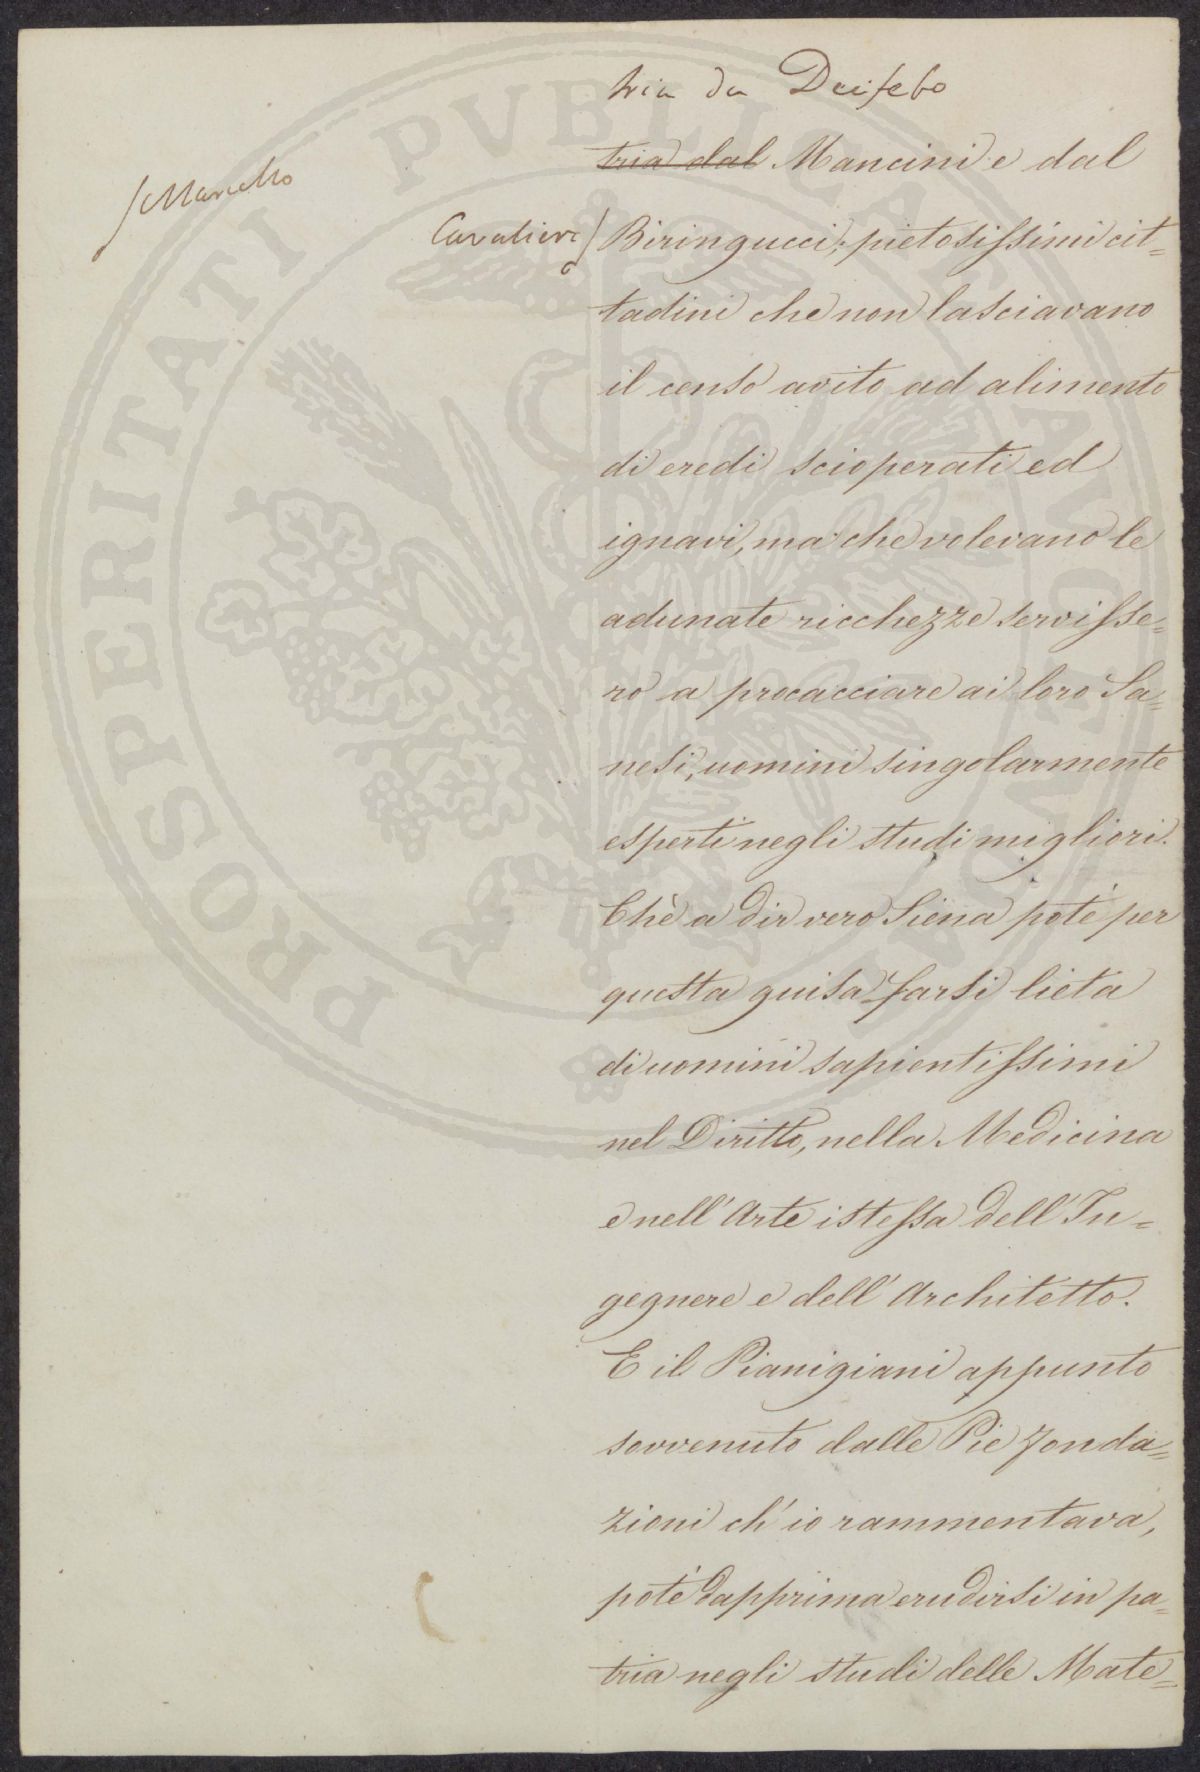 tria da Deifebo
tria dal Mancini e dal
Marcello
Cavaliere
Biringucci, pietosissimi cit=
tadini che non lasciavano
il censo avito ad alimento
di eredi scioperati ed
ignavi, ma che volevano le
adunate ricchezze servisse=
ro a procacciare ai loro Sa=
nesi, uomini singolarmente
esperti negli studi migliori.
Chè a dir vero Siena poté per
questa guisa farsi lieta
di uomini sapientissimi
nel Diritto, nella Medicina
e nell'Arte istessa dell'In=
gegnere e dell'Architetto.
E il Pianigiani appunto
sovvenuto dalle Pie Fonda=
zioni ch'io rammentava,
poté dapprima erudirsi in pa=
tria negli studi delle Mate=
PROSPERITATI PVBLICAE AVGENDAE